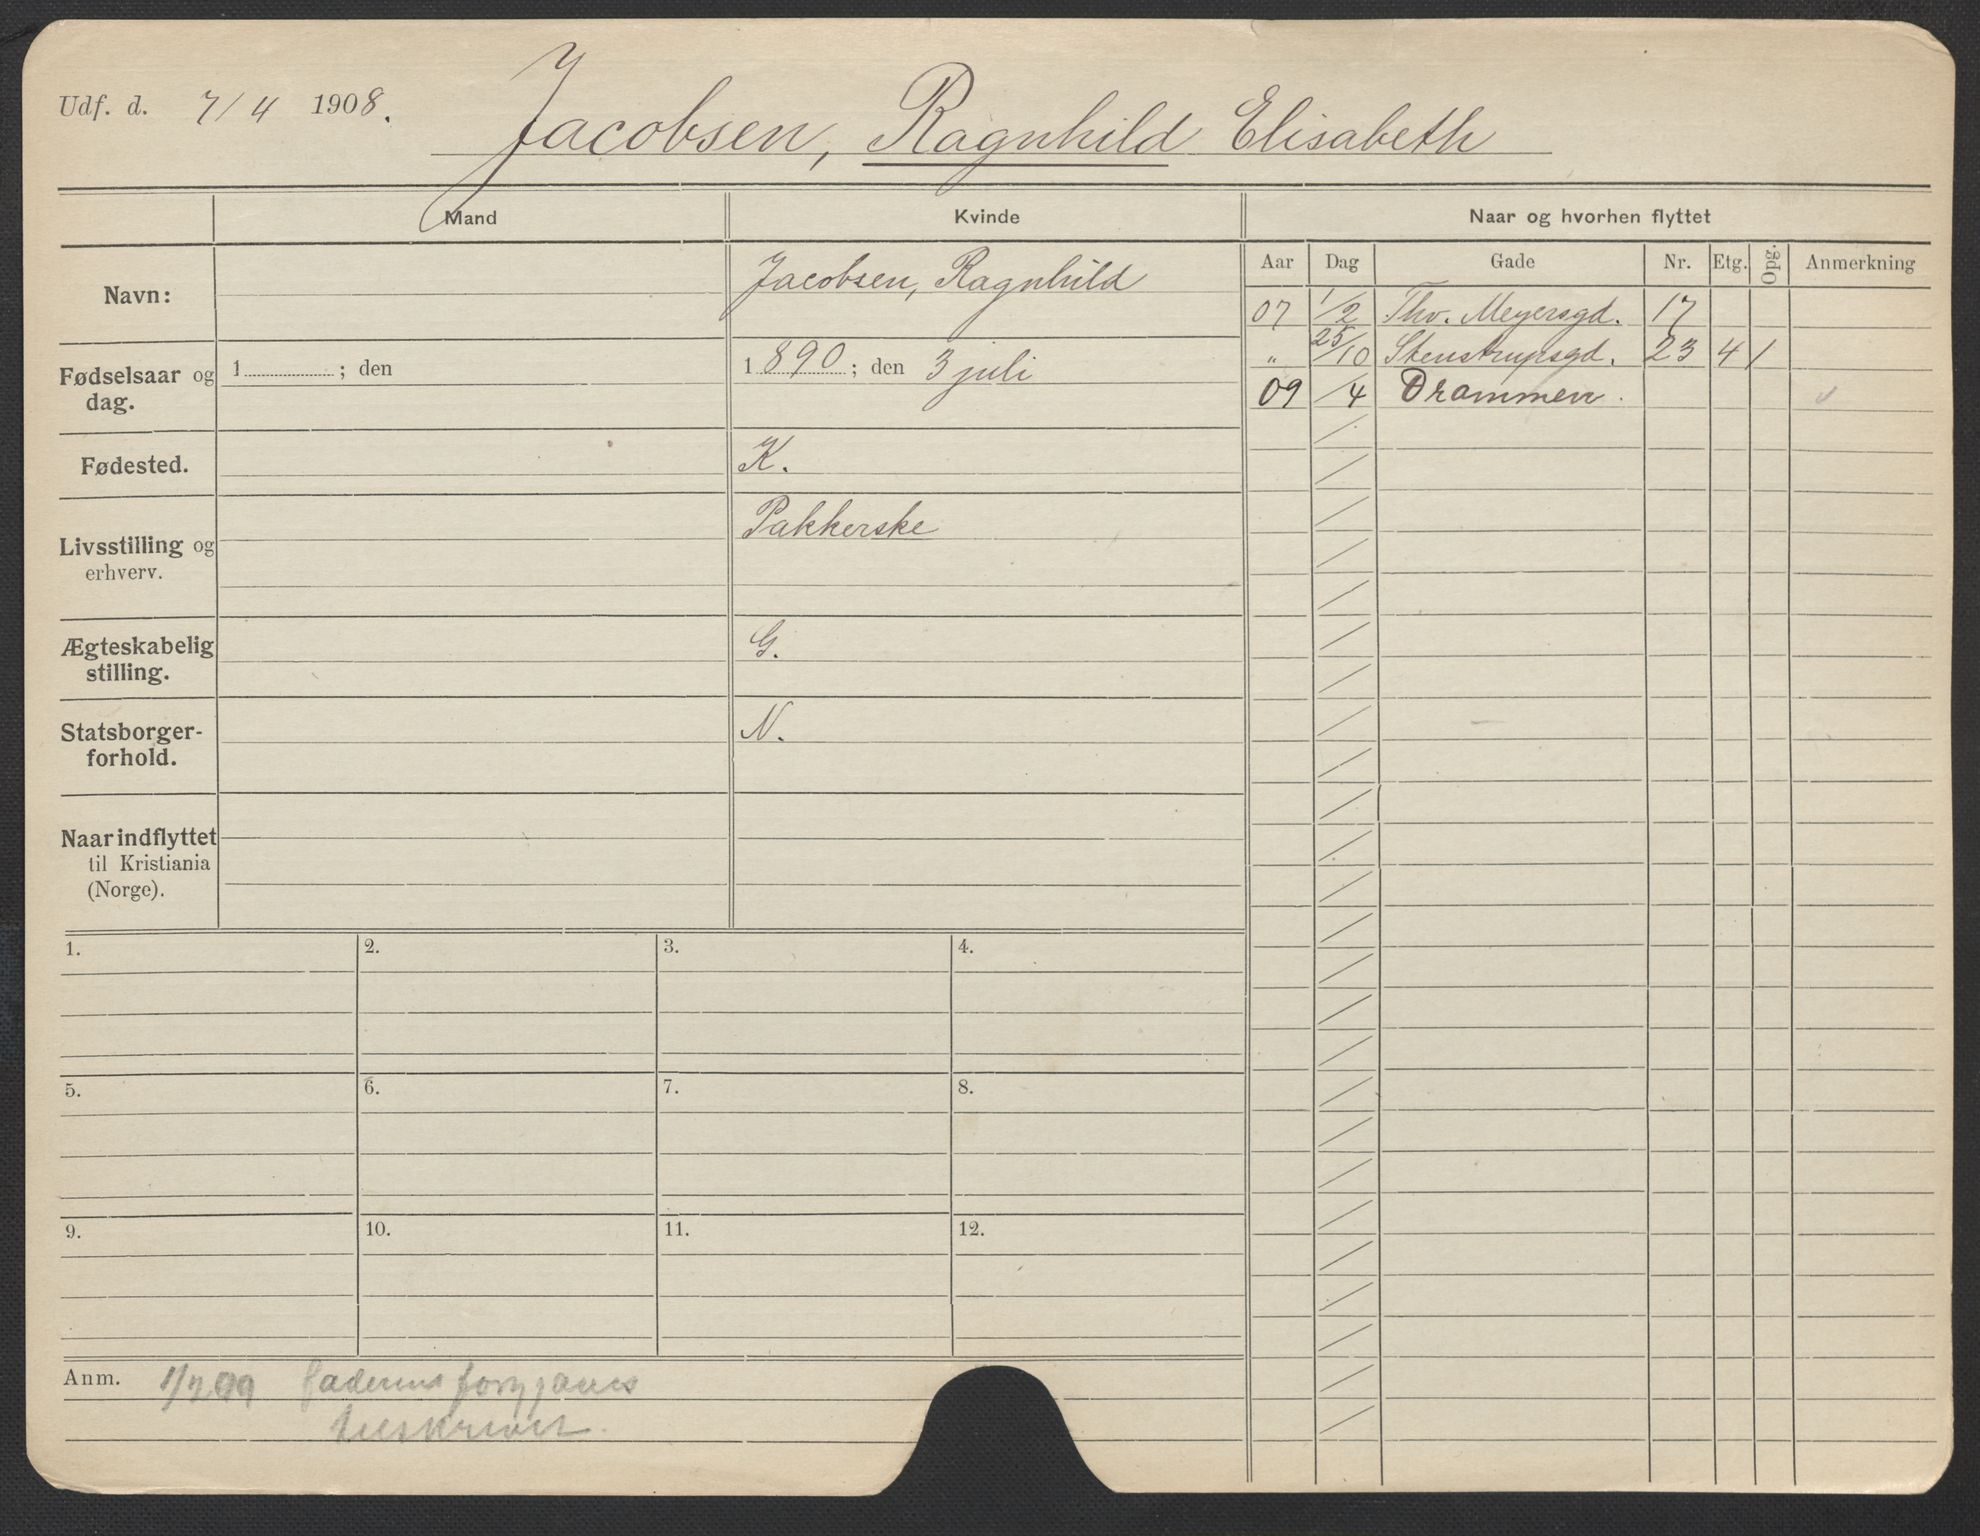 Udf. d. 7/4 1908.
Jacobsen, Ragnhild Elisabeth
Mand Kvinde Naar og hvorhen flyttet
Aar Dag Gade Nr. Etg. Opg. Anmerkning
Navn: Jacobsen, Ragnhild
Fødselsaar og dag. 1 ; den 1890; den 3 juli
Fødested. K.
Livsstilling og erhverv. Pakkerske
Ægteskabelig stilling. G.
Statsborger-
forhold. N.
Naar indflyttet
til Kristiania
(Norge).
07 1/2 Thv. Meyersgd. 17
" 25/10 Stenstrupsgd. 23 4 1
09 /4 Drammen.
1. 2. 3. 4.
5. 6. 7. 8.
9. 10. 11. 12.
Anm.